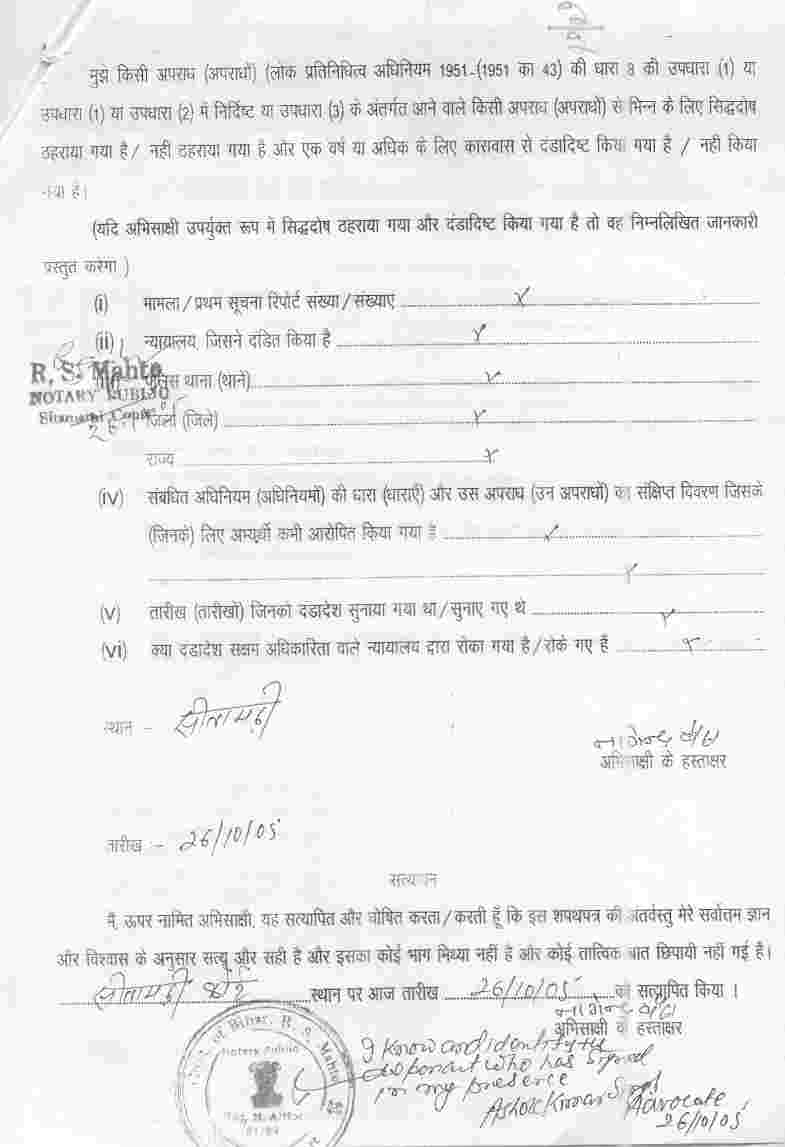 मुझे किसी अपराध (अपराधों) (लोक प्रतिनिधित्व अधिनियम 1951 (1951 का 43) की धारा 8 की उपधारा (1) या
उपधारा (1) या उपधारा (2) में निर्दिष्ट या उपधारा (3) के अंतर्गत आने वाले किसी अपराध (अपराधों) से भिन्न के लिए सिद्धदोष
ठहराया गया है / नहीं ठहराया गया है और एक वर्ष या अधिक के लिए कारावास से दंडादिष्ट किया गया है / नहीं किया
गया है।
(यदि अभिसाक्षी उपर्युक्त रूप में सिद्धदोष ठहराया गया और दंडादिष्ट किया गया है तो वह निम्नलिखित जानकारी
प्रस्तुत करेगा )
(i) मामला / प्रथम सूचना रिपोर्ट संख्या / संख्याएं x
(ii) न्यायालय, जिसने दंडित किया है x
R. S. Mahto
पुलिस थाना (थाने) x
NOTARY PUBLIC
जिला (जिले) x
राज्य x
(iv) संबंधित अधिनियम (अधिनियमों) की धारा (धाराएँ) और उस अपराध (उन अपराधों) का संक्षिप्त विवरण जिसके
(जिनके) लिए अभ्यर्थी कभी आरोपित किया गया है x
x
(v) तारीख (तारीखों) जिनको दंडादेश सुनाया गया था / सुनाए गए थे x
(vi) क्या दंडादेश सक्षम अधिकारिता वाले न्यायालय द्वारा रोका गया है / रोके गए हैं x
स्थान - सीतामढ़ी
अभिसाक्षी के हस्ताक्षर
तारीख :- 26/10/05
सत्यापन
मैं, ऊपर नामित अभिसाक्षी, यह सत्यापित और घोषित करता / करती हूँ कि इस शपथपत्र की अंतर्वस्तु मेरे सर्वोत्तम ज्ञान
और विश्वास के अनुसार सत्य और सही है और इसका कोई भाग मिथ्या नहीं है और कोई तात्विक बात छिपायी नहीं गई है।
सीतामढ़ी कोर्ट स्थान पर आज तारीख 26/10/05 को सत्यापित किया ।
अभिसाक्षी के हस्ताक्षर
Govt. of Bihar, R. S. Mahto
Notary Public
I know and identify the
deponant who has signed
in my presence
Ashok Kumar Singh
Advocate
26/10/05